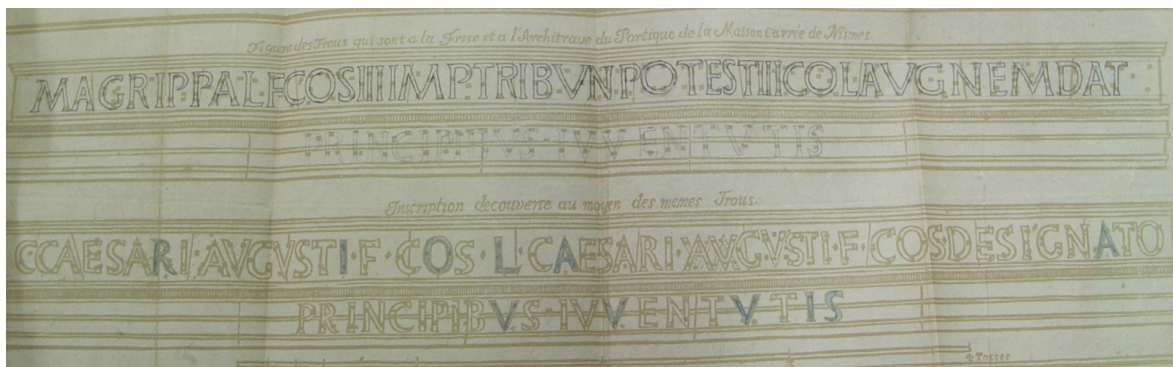 Figure des Trous qui sont a la Frise et a l'Architrave du Portique de la Maison Carrée de Nismes.
M·AGRIPPA·L·F·COS·III·IMP·TRIBVN·POTEST·III·COL·AVG·NEM·DAT
PRINCIPIBVS·IVVENTVTIS
Inscription decouverte au moyen des memes Trous.
C·CAESARI·AVGVSTI·F·COS·L·CAESARI·AVGVSTI·F·COS·DESIGNATO
PRINCIPIBVS·IVVENTVTIS